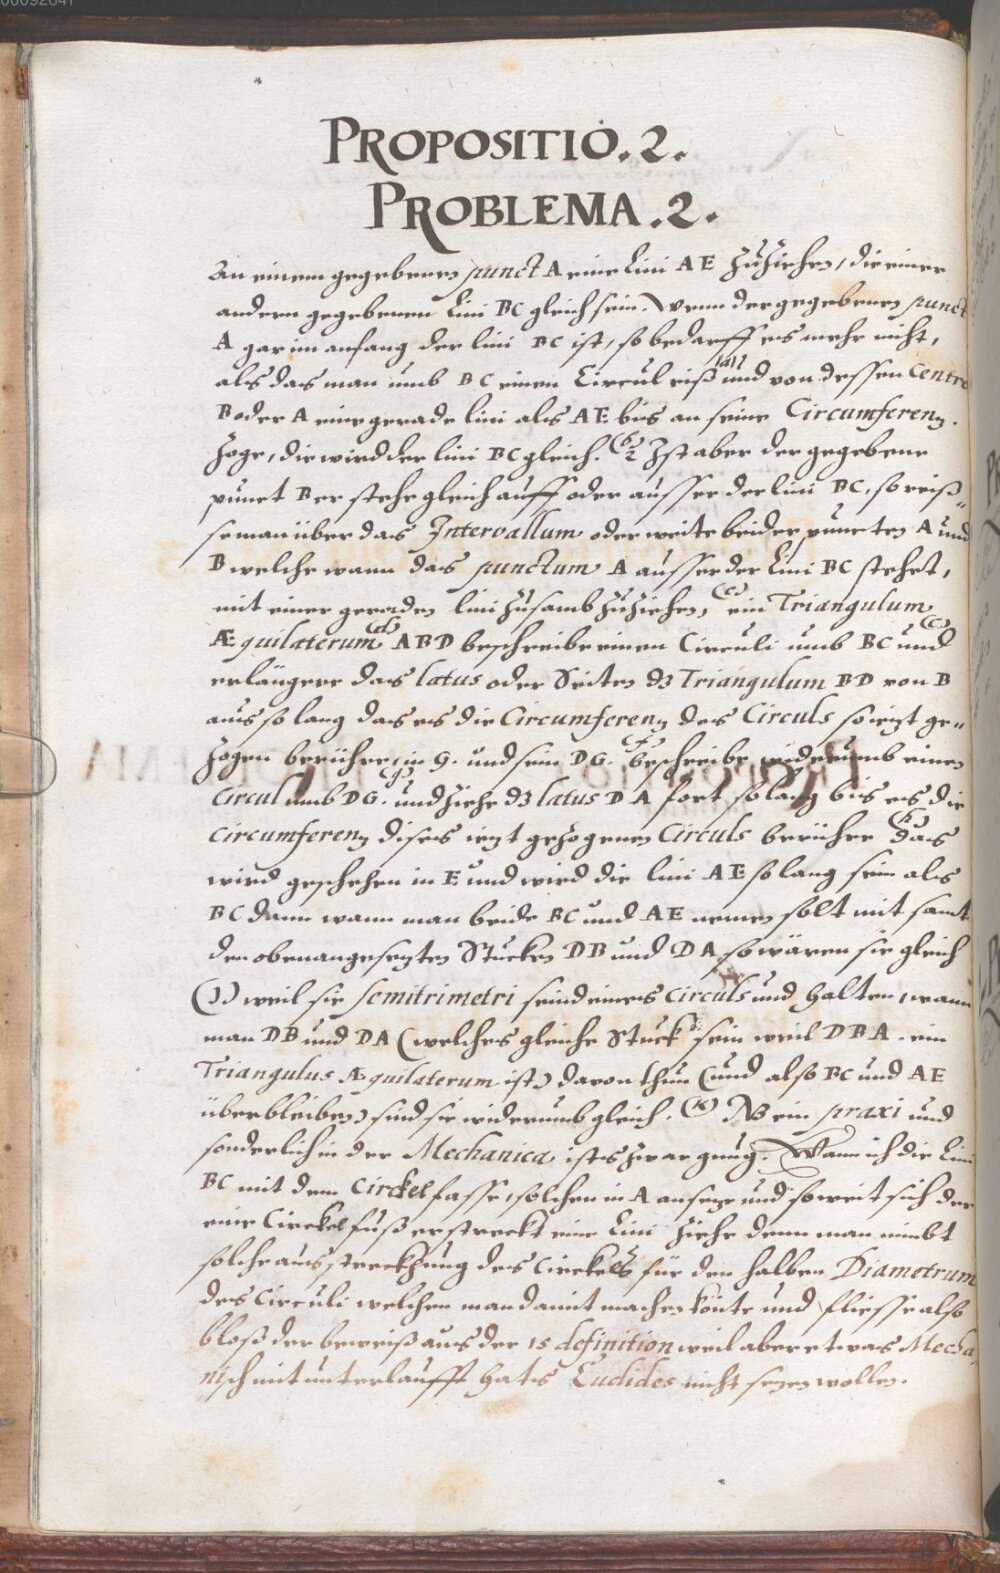 00092641
PROPOSITIO. 2.
PROBLEMA. 2.
An einem gegebenen punct A eine Lini AE zuziehen, die einer
andern gegebenen Lini BC gleich sein. Wenn der gegebenen punct
A gar im anfang der lini BC ist, so bedarff es mehr nicht,
als das man umb BC einen Circul reiß (a) und von dessen Centro
B oder A eine gerade lini als AE bis an seine Circumferenz.
zoge, die wird der lini BC gleich. (b) 2 Ist aber der gegebene
punct B er stehe gleich auff oder ausser der lini BC, so reiß„
se man über das Intervallum oder weite beider puncten A und
B welche wann das punctum A ausser der Lini BC stehet,
mit einer geraden lini zusamb zuziehen, (c) ein Triangulum
Æquilaterum (d) ABD beschreibe einen Circuli umb BC und (e)
erlängere das latus oder Seiten dz Triangulum BD von B
aus so lang das es die Circumferenz des Circuls so iezt ge„
zogen berühre, in G. und sein DG. (f) beschreibe widerumb einen
Circul umb DG. (g) und ziehe dz latus DA fort so lang bis es die
Circumferenz dises iezt gezogenen Circuls berühre (h) das
wird geschehen in E und wird die lini AE so lang sein als
BC dann wann man beide BC und AE nemen solt mit samt
den oben angesezten Stucken DB und DA so wären sie gleich
(i) weil sie Semitrimetri seind eines Circuls und halten, wann
man DB und DA (welches gleiche Stuck sein weil DBA. ein
Triangulus Æquilaterum ist) davon thun (und also BC und AE
überbleiben) sind sie widerumb gleich. (k) NB ein praxi und
sonderlich in der Mechanica ist es zwar gnug. Wann ich die Lini
BC mit dem Circkel fasse, solchen in A anseze und so weit sich der
eine Cirekel fuß erstreckt eine Lini ziehe denn man nimbt
solche ausstreckhung des Cirekels für den halben Diametrum
des Circuli welchen man damit machen könte und fliesse also
bloß der beweiß aus der 15 definition weil aber etwas Mecha
nisch mit unterlaufft hat es Euclides nicht sezen wollen.